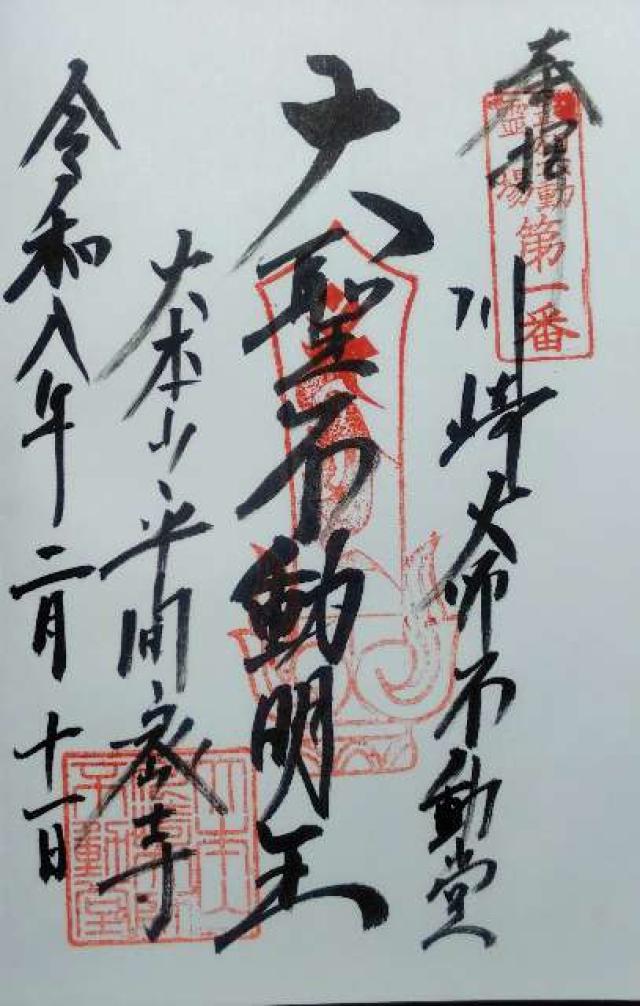 奉拝
霊場
第一番
川崎大師不動堂
大聖不動明王
大本山平間寺
令和八年二月十一日